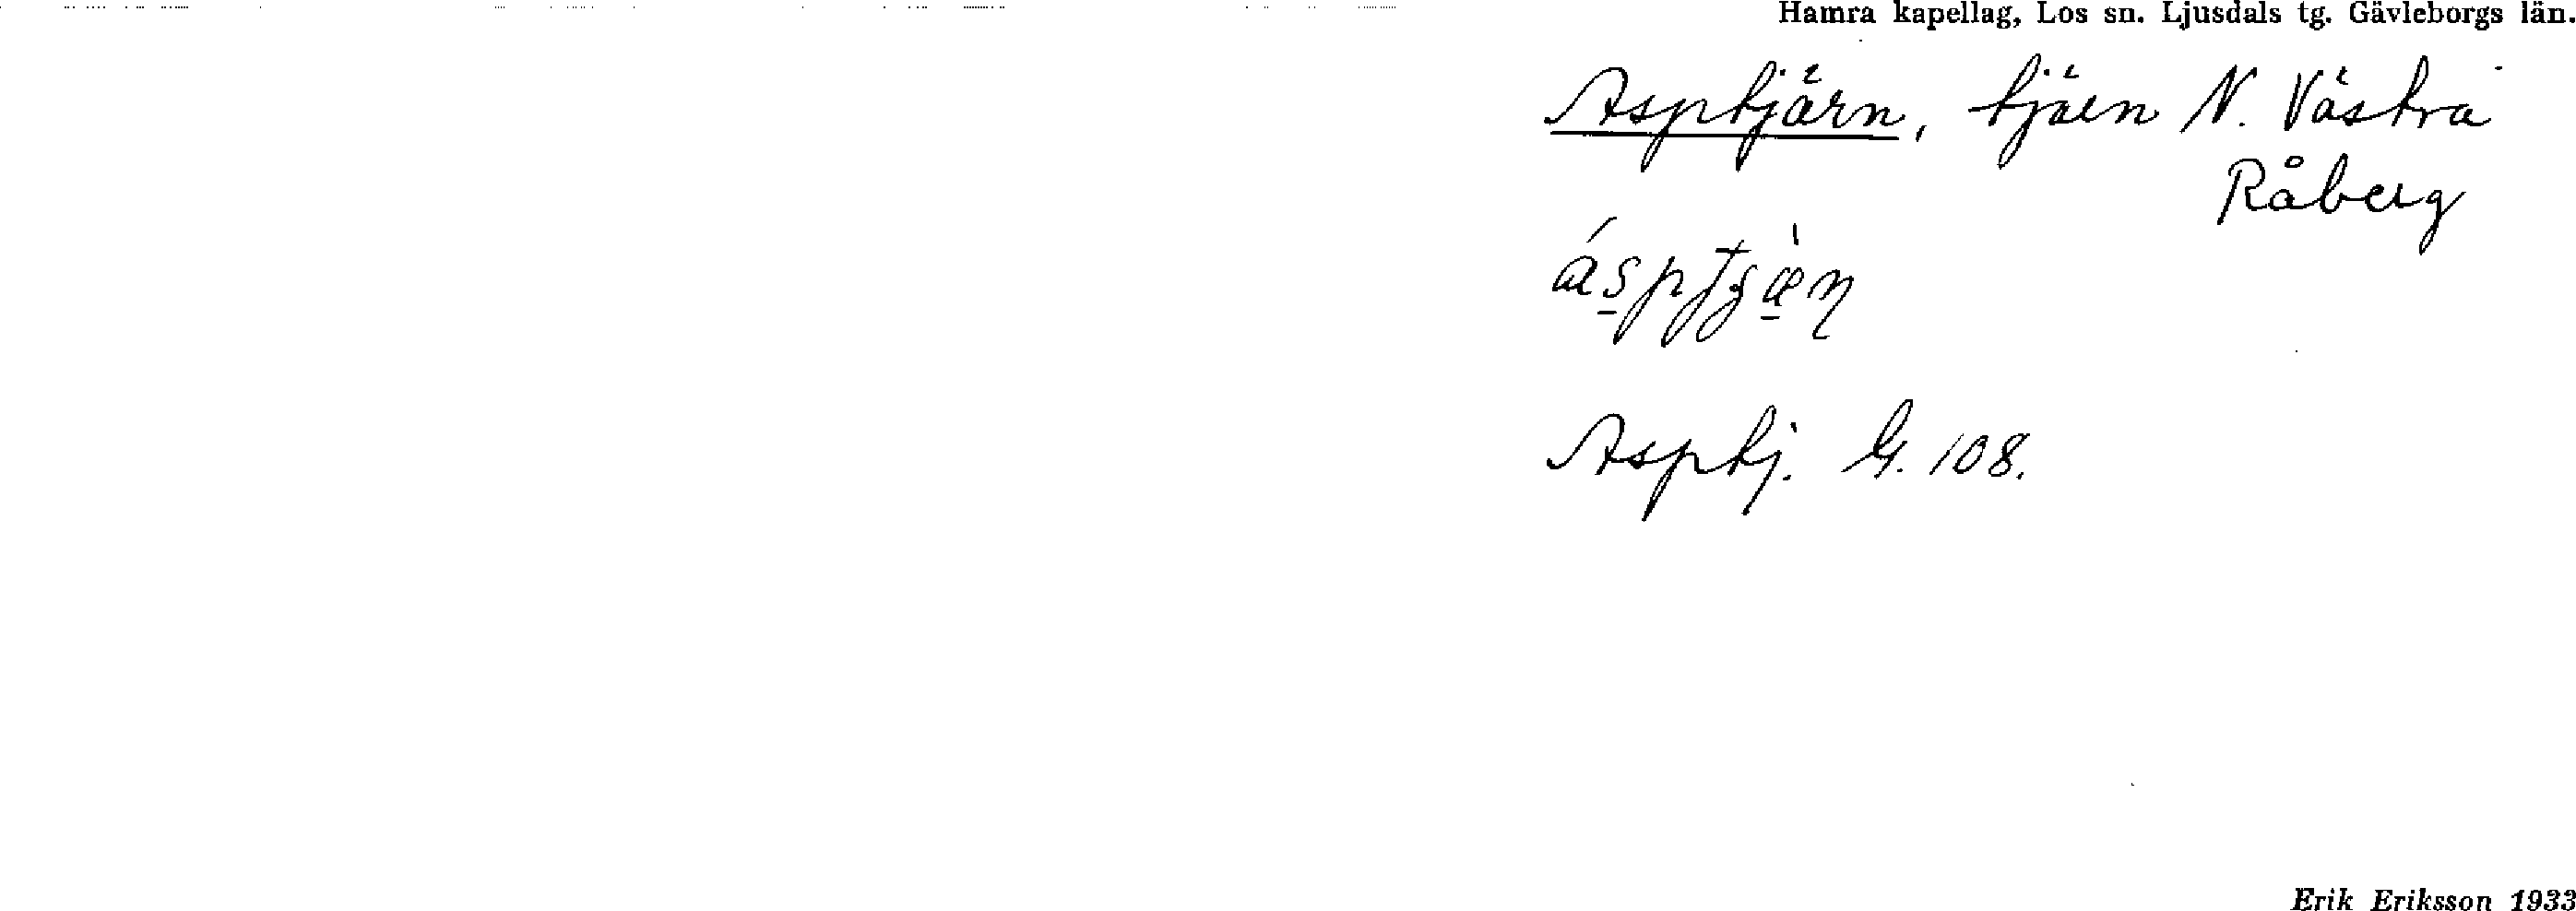 Hamra kapellag, Los sn. Ljusdals tg. Gävleborgs län.
Asptjärn, tjärn N. Västra
Råberg
Asptj. G. 108.
Erik Eriksson 1933